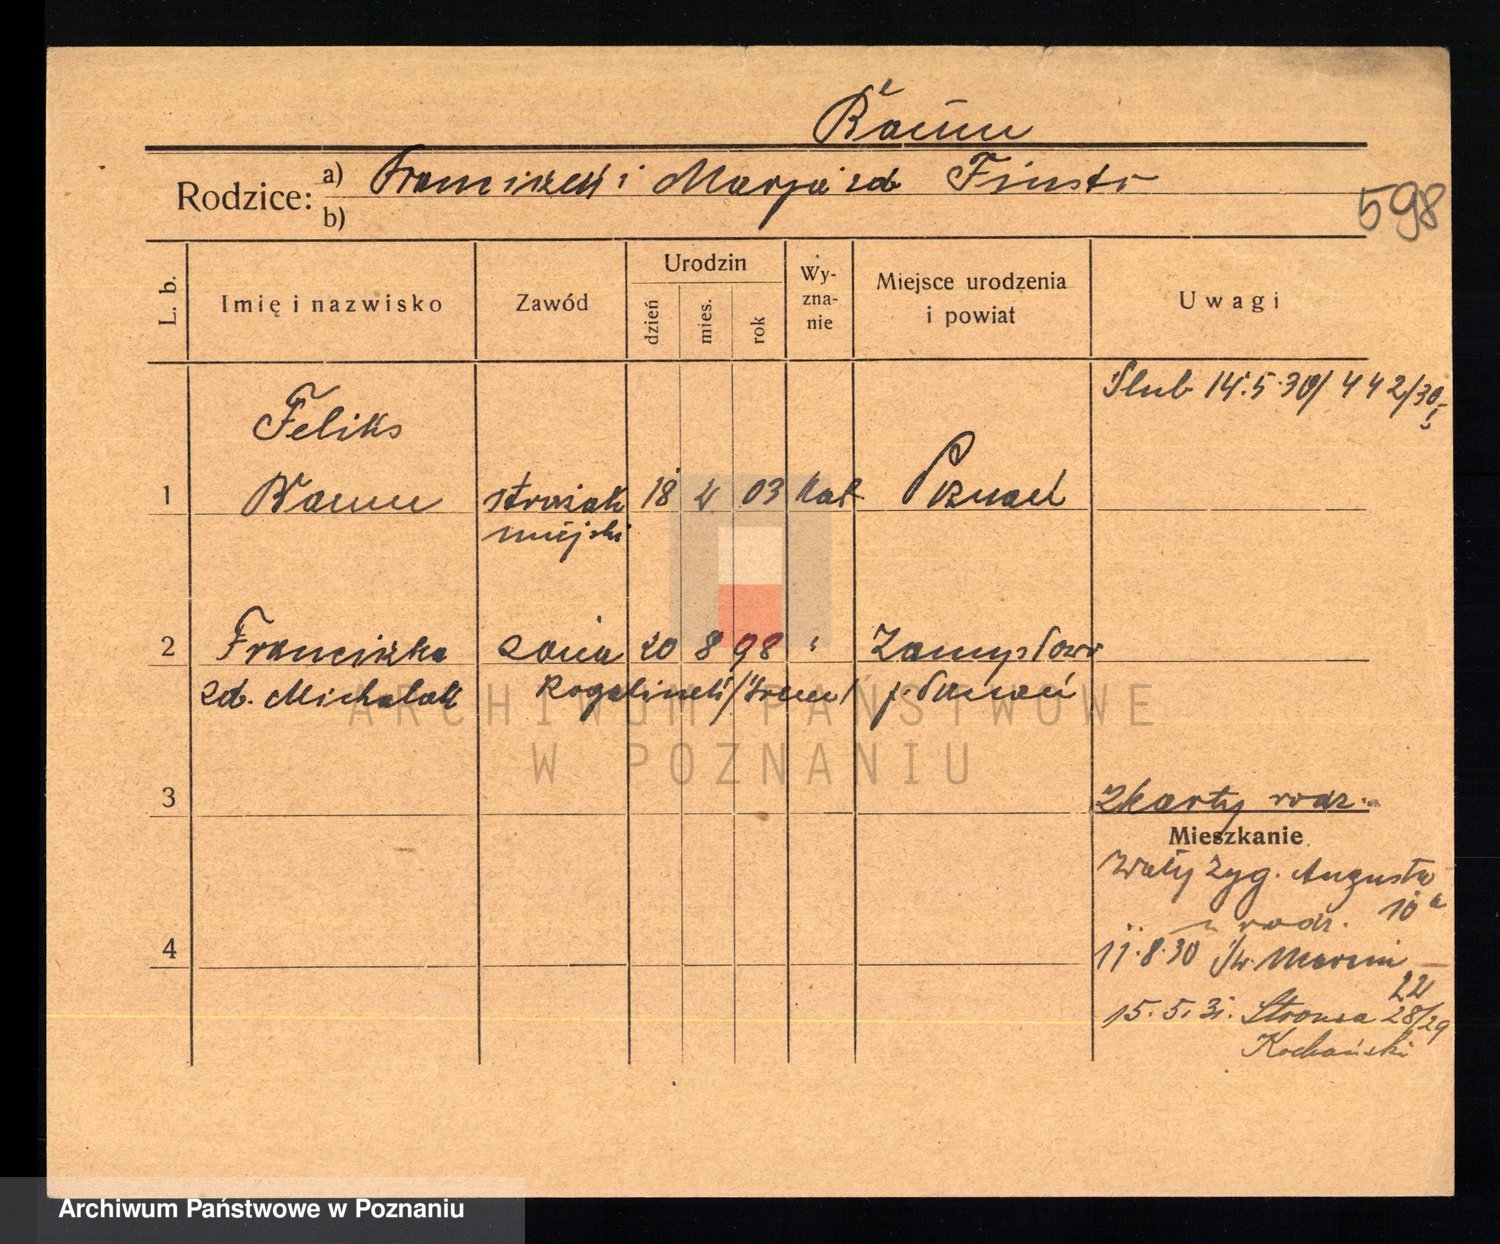 Rodzice: a) Franciszek i Marja zd
b)
598
L. b.
Imię i nazwisko
Zawód
Urodzin
dzień
mies.
rok
Wy-
zna-
nie
Miejsce urodzenia
i powiat
Uwagi
Ślub 14.5.30 / 442/30
Feliks
1
strażak 18 03 kat. Poznań
miejski
2 Franciszka żona 20 8 98 " Zamysłowo
zd. Michalak
3
Z karty rodz.
Mieszkanie
Wały Zyg. Augusta
10 a
u rodz.
4
11.8.30 Św. Marcin
22
15.5.31. Stroma 28/29
Kochański
ARCHIWUM PAŃSTWOWE
W POZNANIU
Archiwum Państwowe w Poznaniu